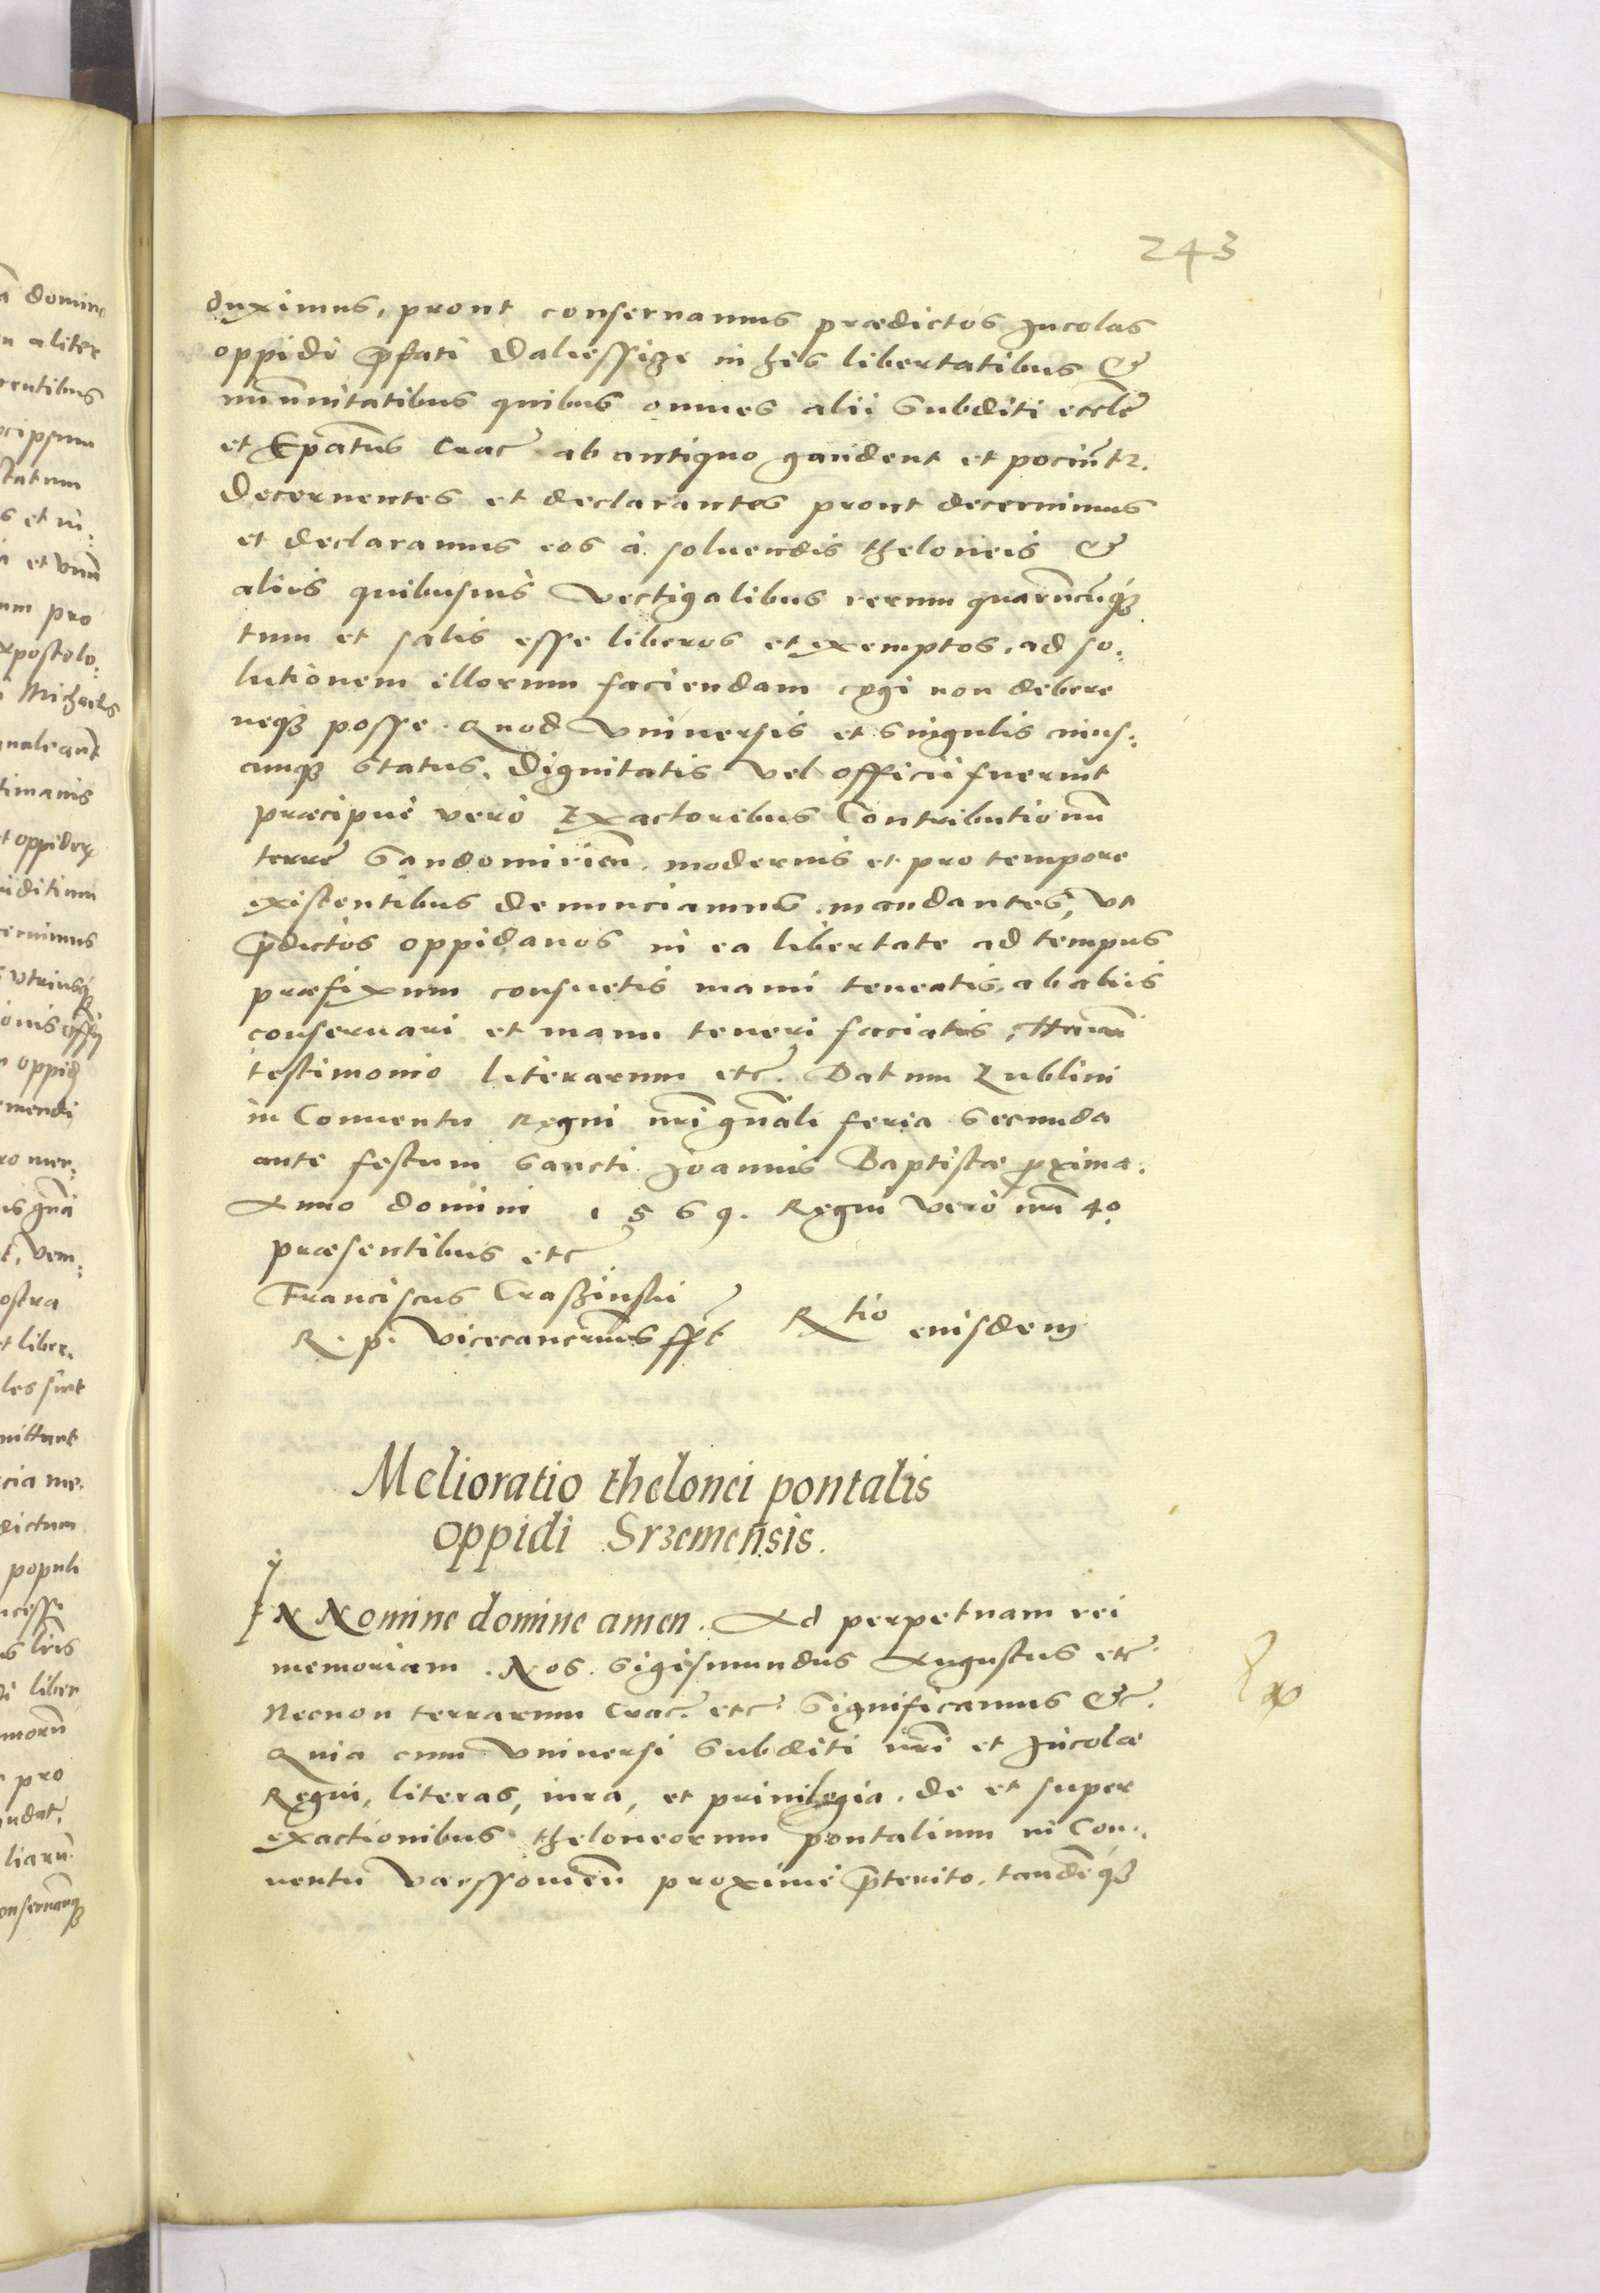 243
duximus, prout conseruamus prædictos Incolas
oppidi p̄fati Daliessize in his libertatibus &
im̄unitatibus quibus omnes alii Subditi eccle͞
et Ep̄atus Crac͞ ab antiquo gaudent et pociunt͞r.
Decernentes et declarantes prout decernimus
et declaramus eos à soluendis theloneis &
aliis quibusuis Vectigalibus rerum quarumcunq₃
tum et salis esse liberos et exemptos, ad so:
lutionem illorum faciendam cogi non debere
neq₃ posse. Quod Vniuersis et Singulis cuius:
cunq₃ Status, Dignitatis Vel officii fuerint
præcipue vero Exactoribus Contributionū
terre͞ Sandomirien͞. modernis et pro tempore
existentibus denunciamus. mandantes, vt
p̄dictos oppidanos in ea libertate ad tempus
præfixum consuetis manu teneatis, ab aliis
conseruari et manu teneri faciatis, Harum
testimonio literarum etc͞. Datum Lublini
in Conuentu Regni nr̄i gn̄ali feria Secunda
ante festum Sancti Joannis Baptistæ proxima.
Anno domini 1569. Regni vero nr̄i 40.
præsentibus etc
Franciscus Craszinski
R. p. Vicecancell͞us sspt͞ Rtio eiusdem
Melioratio thelonei pontalis
oppidi Srzemensis.
IN Nomine domine amen. Ad perpetuam rei
memoriam. Nos Sigismundus Augustus etc͞.
Necnon terrarum Crac͞. etc͞. Significamus &c͞.
Quia cum Vniuersi Subditi nr̄i et Incolæ
Regni, literas, iura, et priuilegia, de et super
exactionibus theloneorum pontalium in Con:
uentu Varssouien͞ proxime p̄terito, tandēq₃